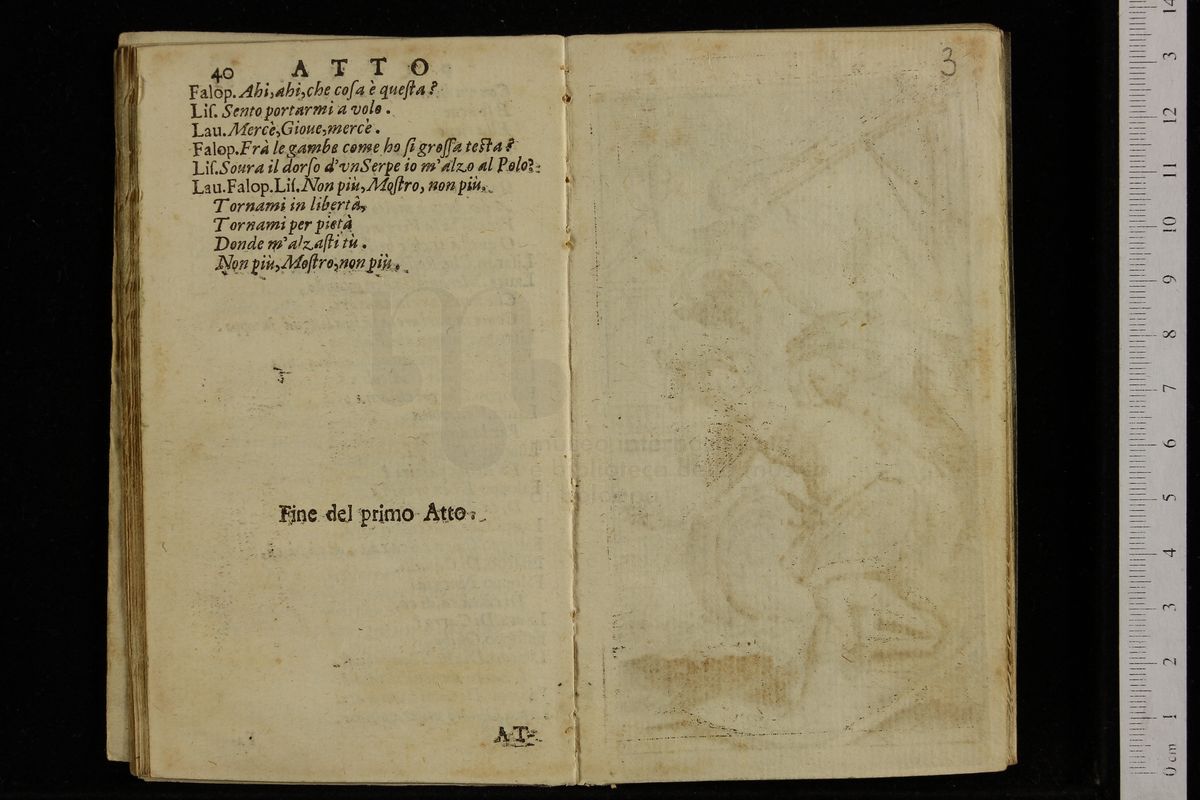 40 ATTO
Falop. Ahi, ahi, che coſa è queſta?
Liſ. Sento portarmi a volo.
Lau. Mercè, Gioue, mercè.
Falop. Frà le gambe come ho ſi groſſa teſta?
Liſ. Soura il dorſo d'vn Serpe io m'alzo al Polo?
Lau. Falop. Liſ. Non più, Moſtro, non più.
Tornami in libertà,
Tornami per pietà
Donde m'alzaſti tù.
Non più, Moſtro, non più.
Fine del primo Atto.
AT-
3
museo internazionale
e biblioteca della musica
di bologna
0 cm 1 2 3 4 5 6 7 8 9 10 11 12 13 14